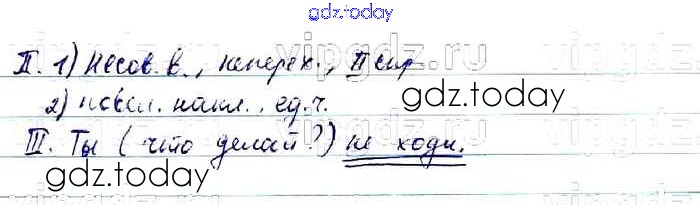 gdz.today
II. 1) несов. в., неперех., II спр
2) повел. накл., ед. ч.
gdz.today
III. Ты (что делай?) не ходи.
gdz.today